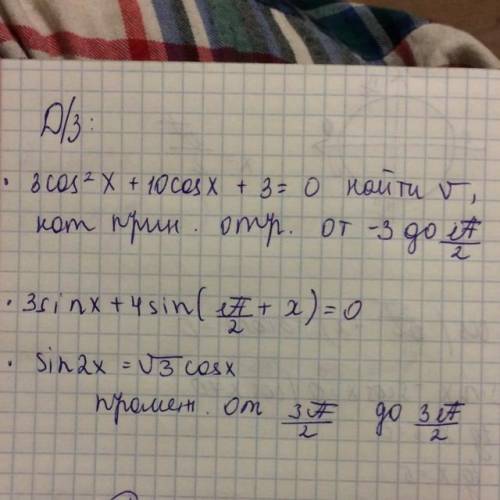 Д/З:
· 3cos²x + 10cosx + 3 = 0 найти √,
кот прин. отр. от -3 до π/2
· 3sinx + 4sin(π/2 + x) = 0
· sin2x = √3 cosx
промеж. от 3π/2 до 3π/2